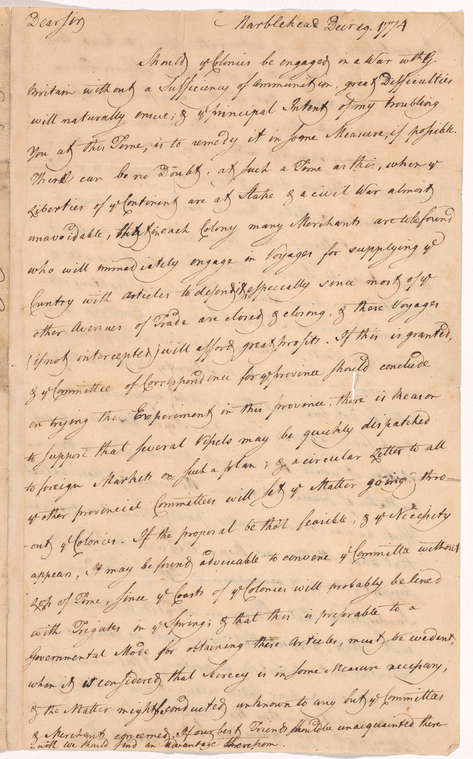 Dear Sir
Marblehead Decr 19. 1774
Should ye Colonies be engaged in a War with G.
Britain without a Sufficiency of Ammunition, great Difficulties
will naturally ensue; & ye principal Intent of my troubling
You at this Time, is to remedy it in some Measure, if possible.
There can be no Doubt, at such a Time as this, when ye
Liberties of ye Continent are at Stake & a civil War almost
unavoidable, that in each Colony many Merchants are to be found
who will immediately engage in Voyages for supplying ye
Cuntry with Articles to defend it, especially since most of ye
other Avenues of Trade are closed & closing, & these Voyages
(if not intercepted) will afford great profits. If this is granted,
& ye Committee of Correspondence for ye province should conclude
on trying the Experiment in this province, there is Reason
to suppose that several Vessels may be quickly dispatched
to foreign Markets on such a plan; & a circular Letter to all
ye other provincial Committees will set ye Matter going thro-
-out ye Colonies. If the proposal be tho't feasible, & ye Necessity
appear, it may be found adviseable to convene ye Committee without
Loss of Time, since ye Coasts of ye Colonies will probably be lined
with Frigates in ye Spring; & that this is preferable to a
Governmental Mode for obtaining these Articles, must be evident,
when it is considered that Secrecy is in some Measure necessary,
& the Matter might be conducted unknown to any but ye Committees
& Merchants concerned. If our best Friends should be unacquainted there
with we should find an Advantage therefrom.